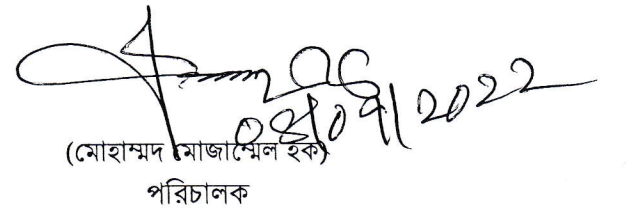 ০৪/০৭/২০২২
(মোহাম্মদ মোজাম্মেল হক)
পরিচালক